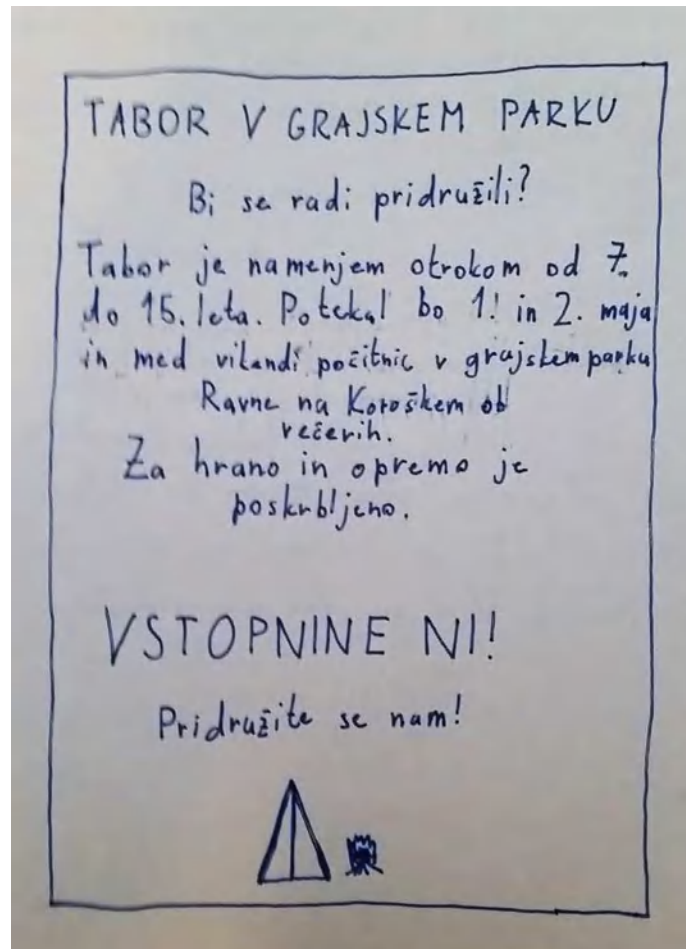 TABOR V GRAJSKEM PARKU
Bi se radi pridružili?
Tabor je namenjem otrokom od 7.
do 15. leta. Potekal bo 1. in 2. maja
in med vikandi počitnic v grajskem parku
Ravne na Koroškem ob
večerih.
Za hrano in opremo je
poskrbljeno.
VSTOPNINE NI!
Pridružite se nam!